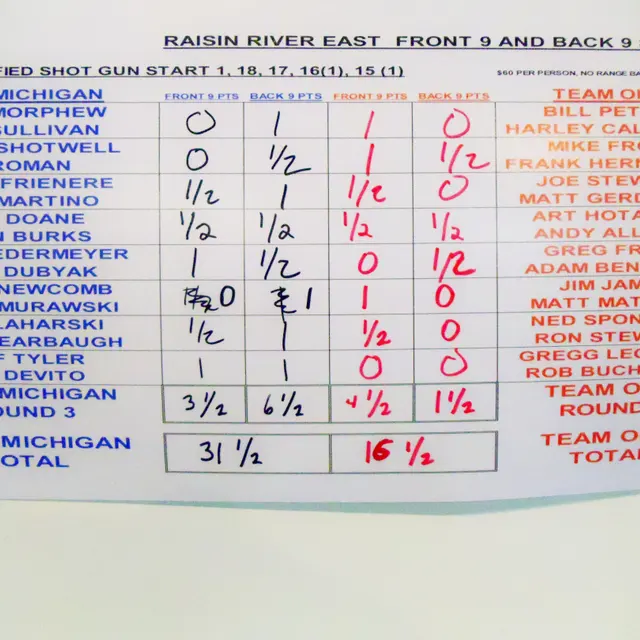 RAISIN RIVER EAST FRONT 9 AND BACK 9
FIED SHOT GUN START 1, 18, 17, 16(1), 15 (1) $60 PER PERSON, NO RANGE BA
MICHIGAN FRONT 9 PTS BACK 9 PTS FRONT 9 PTS BACK 9 PTS TEAM O
MORPHEW BILL PET
SULLIVAN 0 1 1 0 HARLEY CAL
SHOTWELL MIKE FRO
ROMAN 0 1/2 1 1/2 FRANK HER
FRIENERE JOE STEW
MARTINO 1/2 1 1/2 0 MATT GERD
DOANE ART HOTA
BURKS 1/2 1/2 1/2 1/2 ANDY ALL
EDERMEYER GREG FR
DUBYAK 1 1/2 0 1/2 ADAM BEN
NEWCOMB JIM JAM
MURAWSKI 0 1 1 0 MATT MAT
LAHARSKI NED SPON
EARBAUGH 1/2 1 1/2 0 RON STEW
F TYLER GREGG LEG
DEVITO 1 1 0 0 ROB BUCH
MICHIGAN TEAM O
OUND 3 3 1/2 6 1/2 4 1/2 1 1/2 ROUND
MICHIGAN TEAM O
OTAL 31 1/2 16 1/2 TOTA